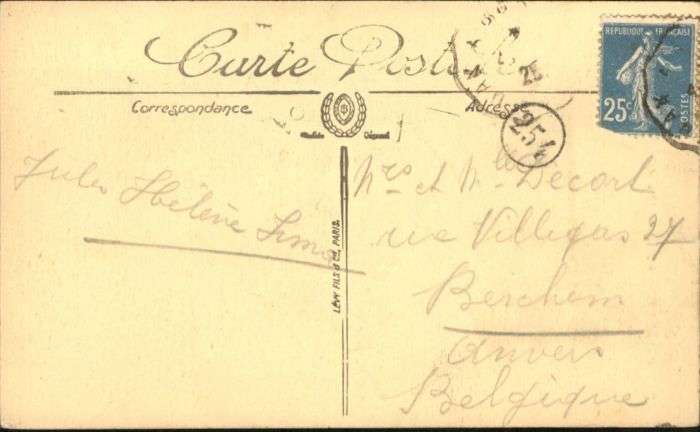 Carte Postale
Correspondance
Adresse
REPUBLIQUE FRANÇAISE
25c
POSTES
25
254
Marque Déposé
LÉVY FILS & Cie, PARIS
Jules Hélène
et Mlle Decort
rue Villegas 27
Berchem
Anvers
Belgique